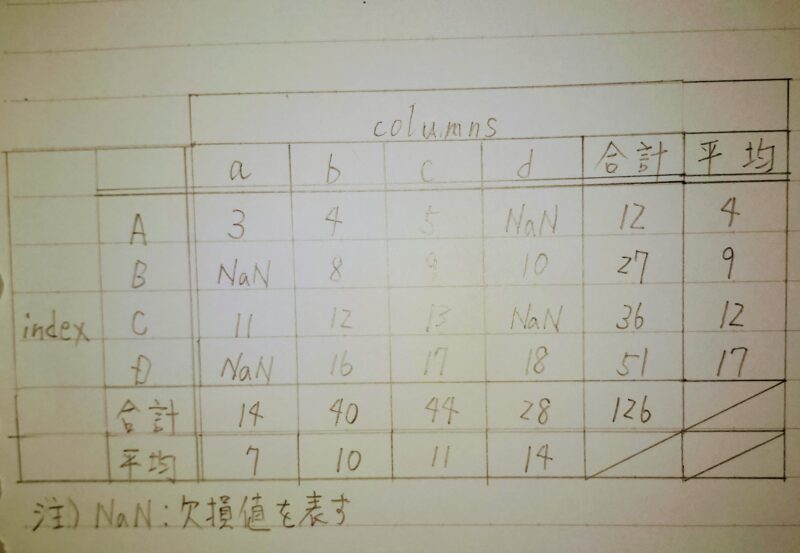 columns
a b c d 合計 平均
A 3 4 5 NaN 12 4
B NaN 8 9 10 27 9
index C 11 12 13 NaN 36 12
D NaN 16 17 18 51 17
合計 14 40 44 28 126
平均 7 10 11 14
注) NaN:欠損値を表す